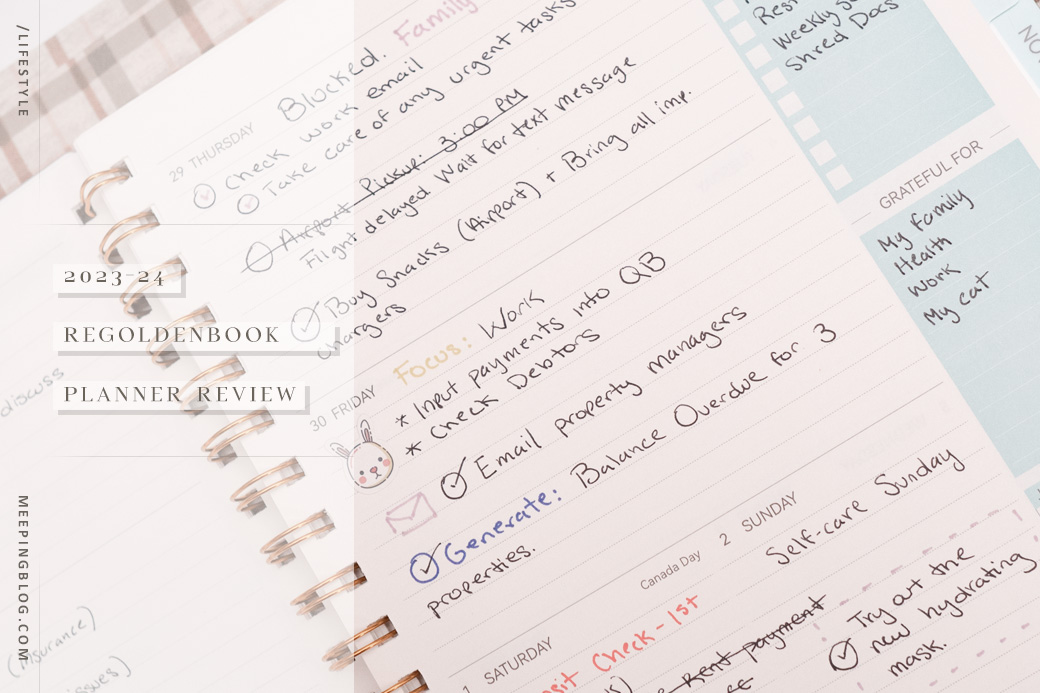 /LIFESTYLE
2023-24
REGOLDENBOOK
PLANNER REVIEW
MEEPINGBLOG.COM
discuss
(insurance)
issues)
29 THURSDAY
Blocked. Family
Check work email
Take care of any urgent tasks
Airport Pickup: 3:00 PM
Flight delayed Wait for text message
Buy Snacks (Airport) + Bring all imp.
Chargers
30 FRIDAY
Focus: Work
* Input payments into QB
* Check Debtors
Email property managers
Generate: Balance Overdue for 3
properties.
1 SATURDAY
Canada Day
Check - 1st
Rent payment
2 SUNDAY
Self-care Sunday
Try out the
new hydrating
mask.
Weekly
Shred Docs
GRATEFUL FOR
My family
Health
Work
My cat